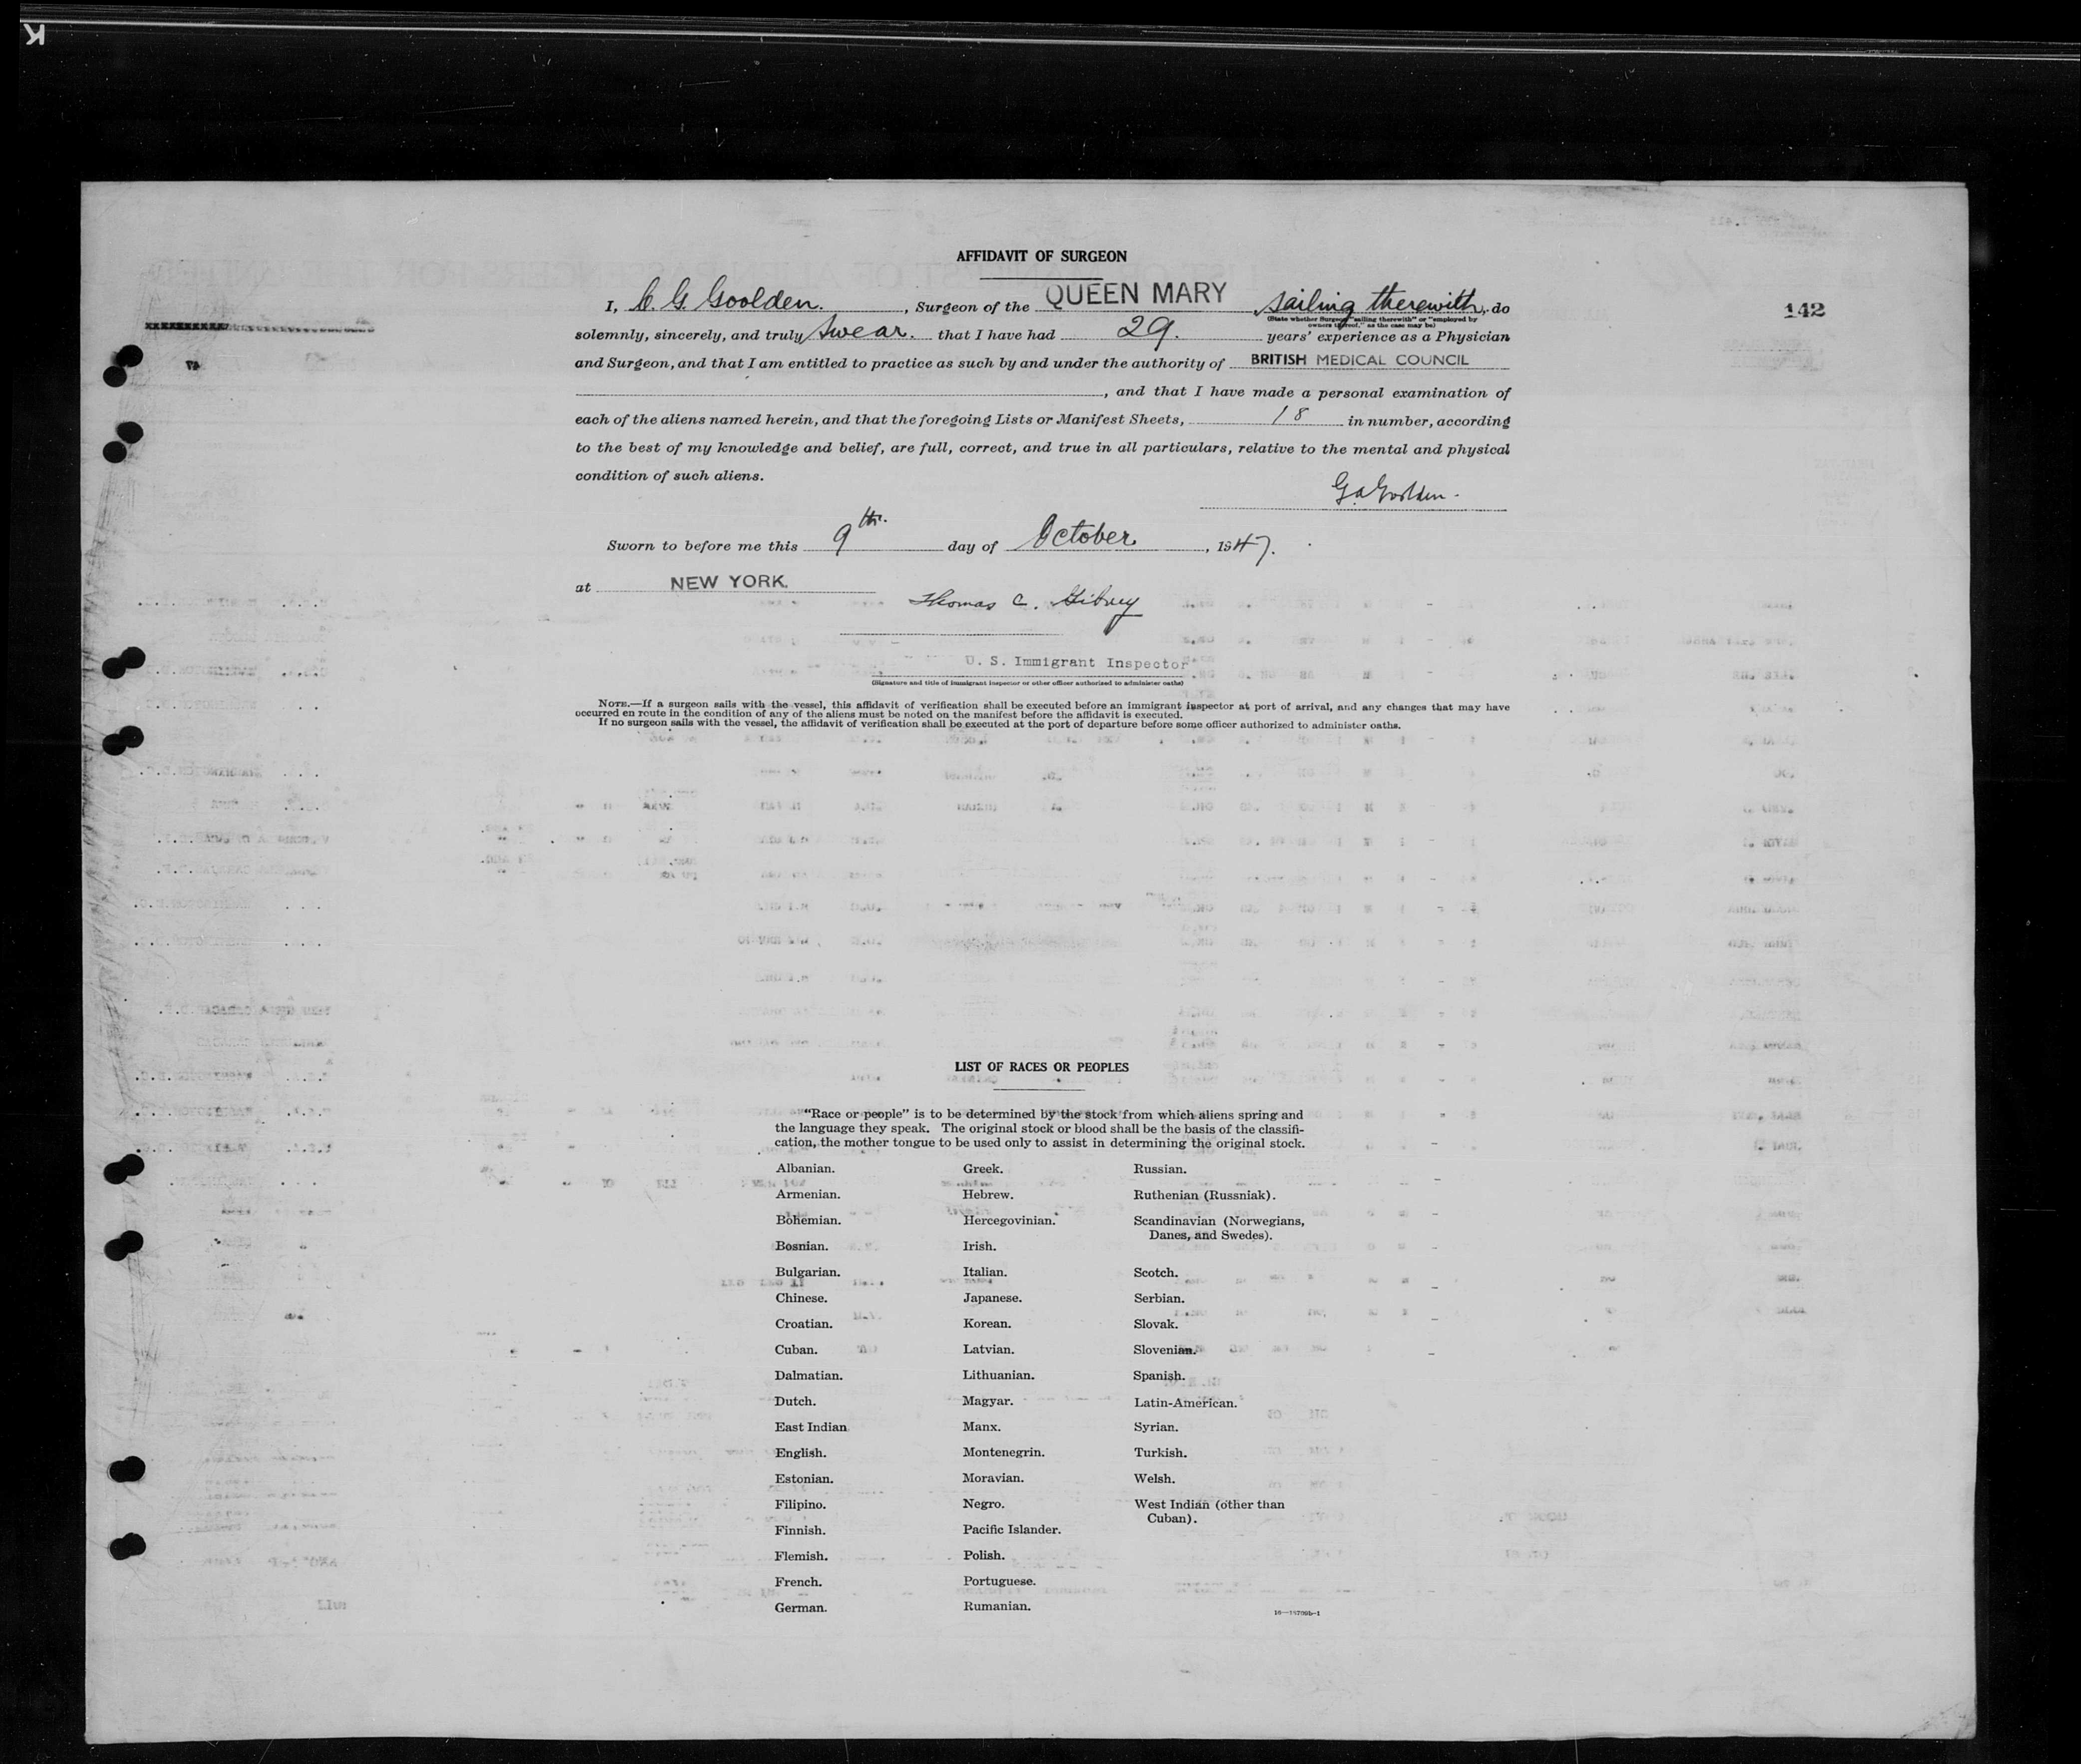 AFFIDAVIT OF SURGEON
I, C. G. Goolden. , Surgeon of the QUEEN MARY , sailing therewith, do
(State whether Surgeon "sailing therewith" or "employed by
owners thereof," as the case may be)
142
solemnly, sincerely, and truly swear. that I have had 29. years' experience as a Physician
and Surgeon, and that I am entitled to practice as such by and under the authority of BRITISH MEDICAL COUNCIL
, and that I have made a personal examination of
each of the aliens named herein, and that the foregoing Lists or Manifest Sheets, 18 in number, according
to the best of my knowledge and belief, are full, correct, and true in all particulars, relative to the mental and physical
condition of such aliens.
Goolden.
Sworn to before me this 9th. day of October , 1947.
at NEW YORK.
Thomas C.
U. S. Immigrant Inspector
(Signature and title of immigrant inspector or other officer authorized to administer oaths)
NOTE.—If a surgeon sails with the vessel, this affidavit of verification shall be executed before an immigrant inspector at port of arrival, and any changes that may have
occurred en route in the condition of any of the aliens must be noted on the manifest before the affidavit is executed.
If no surgeon sails with the vessel, the affidavit of verification shall be executed at the port of departure before some officer authorized to administer oaths.
LIST OF RACES OR PEOPLES
"Race or people" is to be determined by the stock from which aliens spring and
the language they speak. The original stock or blood shall be the basis of the classifi-
cation, the mother tongue to be used only to assist in determining the original stock.
Albanian.
Armenian.
Bohemian.
Bosnian.
Bulgarian.
Chinese.
Croatian.
Cuban.
Dalmatian.
Dutch.
East Indian
English.
Estonian.
Filipino.
Finnish.
Flemish.
French.
German.
Greek.
Hebrew.
Hercegovinian.
Irish.
Italian.
Japanese.
Korean.
Latvian.
Lithuanian.
Magyar.
Manx.
Montenegrin.
Moravian.
Negro.
Pacific Islander.
Polish.
Portuguese.
Rumanian.
Russian.
Ruthenian (Russniak).
Scandinavian (Norwegians,
Danes, and Swedes).
Scotch.
Serbian.
Slovak.
Slovenian.
Spanish.
Latin-American.
Syrian.
Turkish.
Welsh.
West Indian (other than
Cuban).